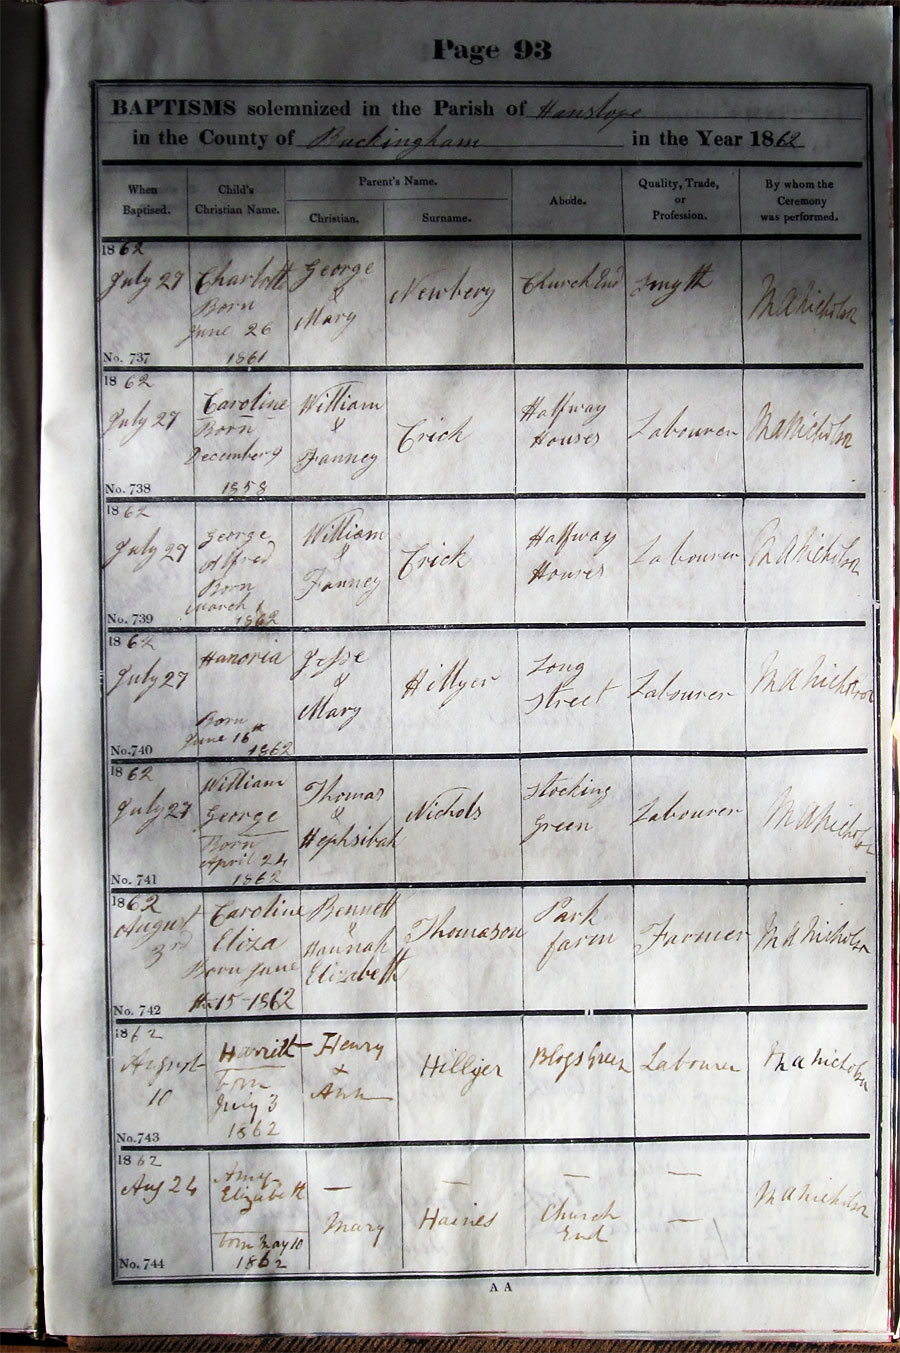 Page 93
BAPTISMS solemnized in the Parish of Hanslope
in the County of Buckingham in the Year 1862
When Baptised.
Child's Christian Name.
Parent's Name.
Christian.
Surname.
Abode.
Quality, Trade, or Profession.
By whom the Ceremony was performed.
1862
July 27
No. 737
Charlott
Born
June 26
1861
George
&
Mary
Newbery
Church End
Smyth
M A Nicholson
1862
July 27
No. 738
Caroline
Born
December 9
1858
William
&
Fanney
Crick
Halfway
Houses
Labourer
M A Nicholson
1862
July 27
No. 739
George
Alfred
Born
March 1
1862
William
&
Fanney
Crick
Halfway
Houses
Labourer
M A Nicholson
1862
July 27
No. 740
Hanoria
Born
June 16th
1862
Jesse
&
Mary
Hillyer
Long
Street
Labourer
M A Nicholson
1862
July 27
No. 741
William
George
Born
April 24
1862
Thomas
&
Hephsibah
Nichols
Stocking
Green
Labourer
M A Nicholson
1862
August
3rd
No. 742
Caroline
Eliza
Born June
15-1862
Bennett
&
Hannah
Elizabeth
Thomason
Park
farm
Farmer
M A Nicholson
1862
August
10
No. 743
Harriett
born
July 3
1862
Henry
+
Ann
Hillyer
Labourer
M A Nicholson
1862
Aug 24
No. 744
Amy
Elizabeth
born May 10
1862
—
Mary
—
Haines
—
Church
End
—
—
M A Nicholson
A A